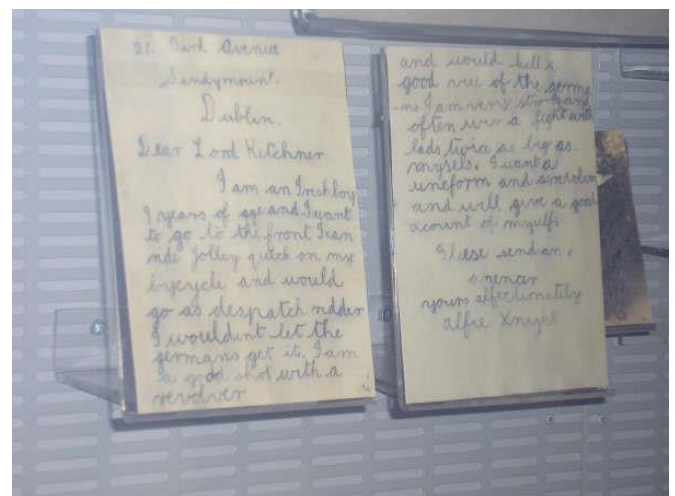 21. Park Avenue
Sandymount.
Dublin.
Dear Lord Kitchner
I am an Irish boy
9 years of age and I want
to go to the front I can
ride jolley quick on my
bycycle and would
go as despatch ridder
I wouldint let the
germans get it. I am
a good shot with a
revolver
and would kill a
good vue of the germ
-ns I am very strong and
often win a fight with
lads twice as big as
myself. I want a
uneform and a revolver
and will give a good
acount of myself.
Please send an
yours affectionately
Alfie Knight